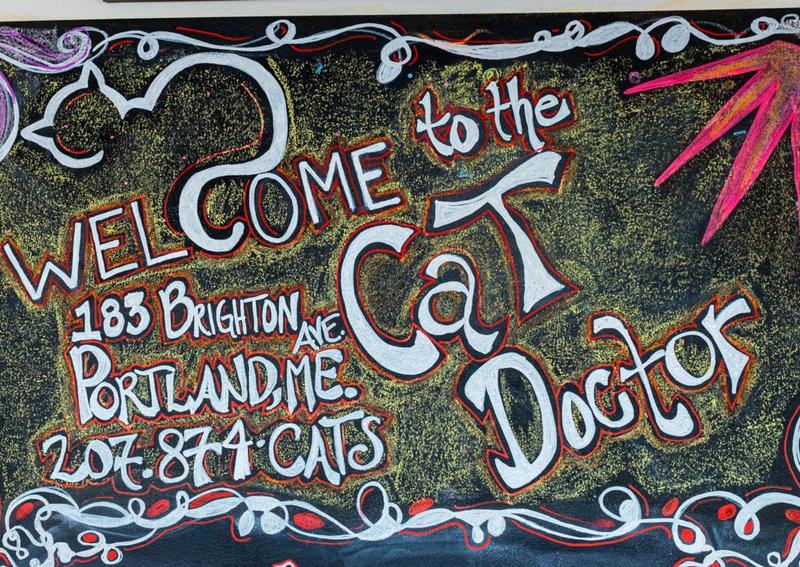 WELCOME to the
CaT
Doctor
183 BRIGHTON AVE.
PORTLAND, ME.
207.874.CATS